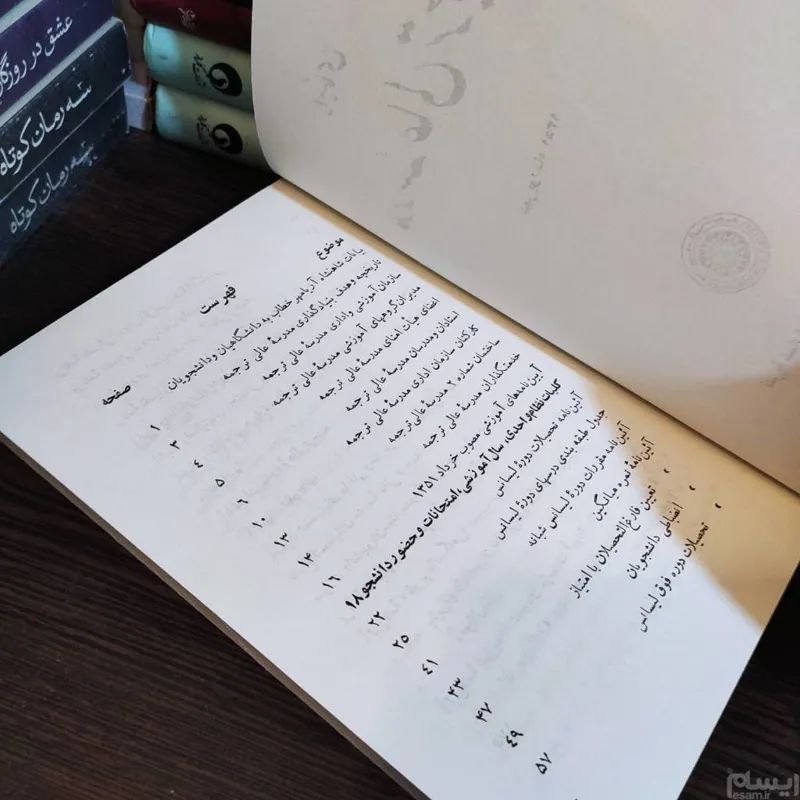 عشق در روزگار
سه رمان کوتاه
سه رمان کوتاه
فهرست
موضوع
صفحه
بیانات شاهنشاه آریامهر خطاب به دانشگاهیان و دانشجویان ۱
تاریخچه و هدف بنیادگذاری مدرسهٔ عالی ترجمه ۳
سازمان آموزشی و اداری مدرسهٔ عالی ترجمه ۴
مدیران گروههای آموزشی مدرسهٔ عالی ترجمه ۵
اعضای هیأت امنای مدرسهٔ عالی ترجمه ۶
استادان و مدرسان مدرسهٔ عالی ترجمه ۱۰
کارکنان سازمان اداری مدرسهٔ عالی ترجمه ۱۳
ساختمان شماره ۲ مدرسهٔ عالی ترجمه ۱۴
خدمتگذاران مدرسهٔ عالی ترجمه ۱۶
آیین‌نامه‌های آموزشی مصوب خرداد ۱۳۵۱
کلیات نظام واحدی، سال آموزشی، امتحانات و حضور دانشجو ۱۸
آئین نامه تحصیلات دورهٔ لیسانس ۲۲
جدول طبقه بندی درسهای دورهٔ لیسانس ۲۵
آئین نامه مقررات دورهٔ لیسانس شبانه ۴۱
آئین نامهٔ نمره میانگین ۴۳
» تعیین فارغ‌التحصیلان با امتیاز ۴۷
» انضباطی دانشجویان ۴۹
» تحصیلات دوره فوق لیسانس ۵۷
ایسام
esam.ir